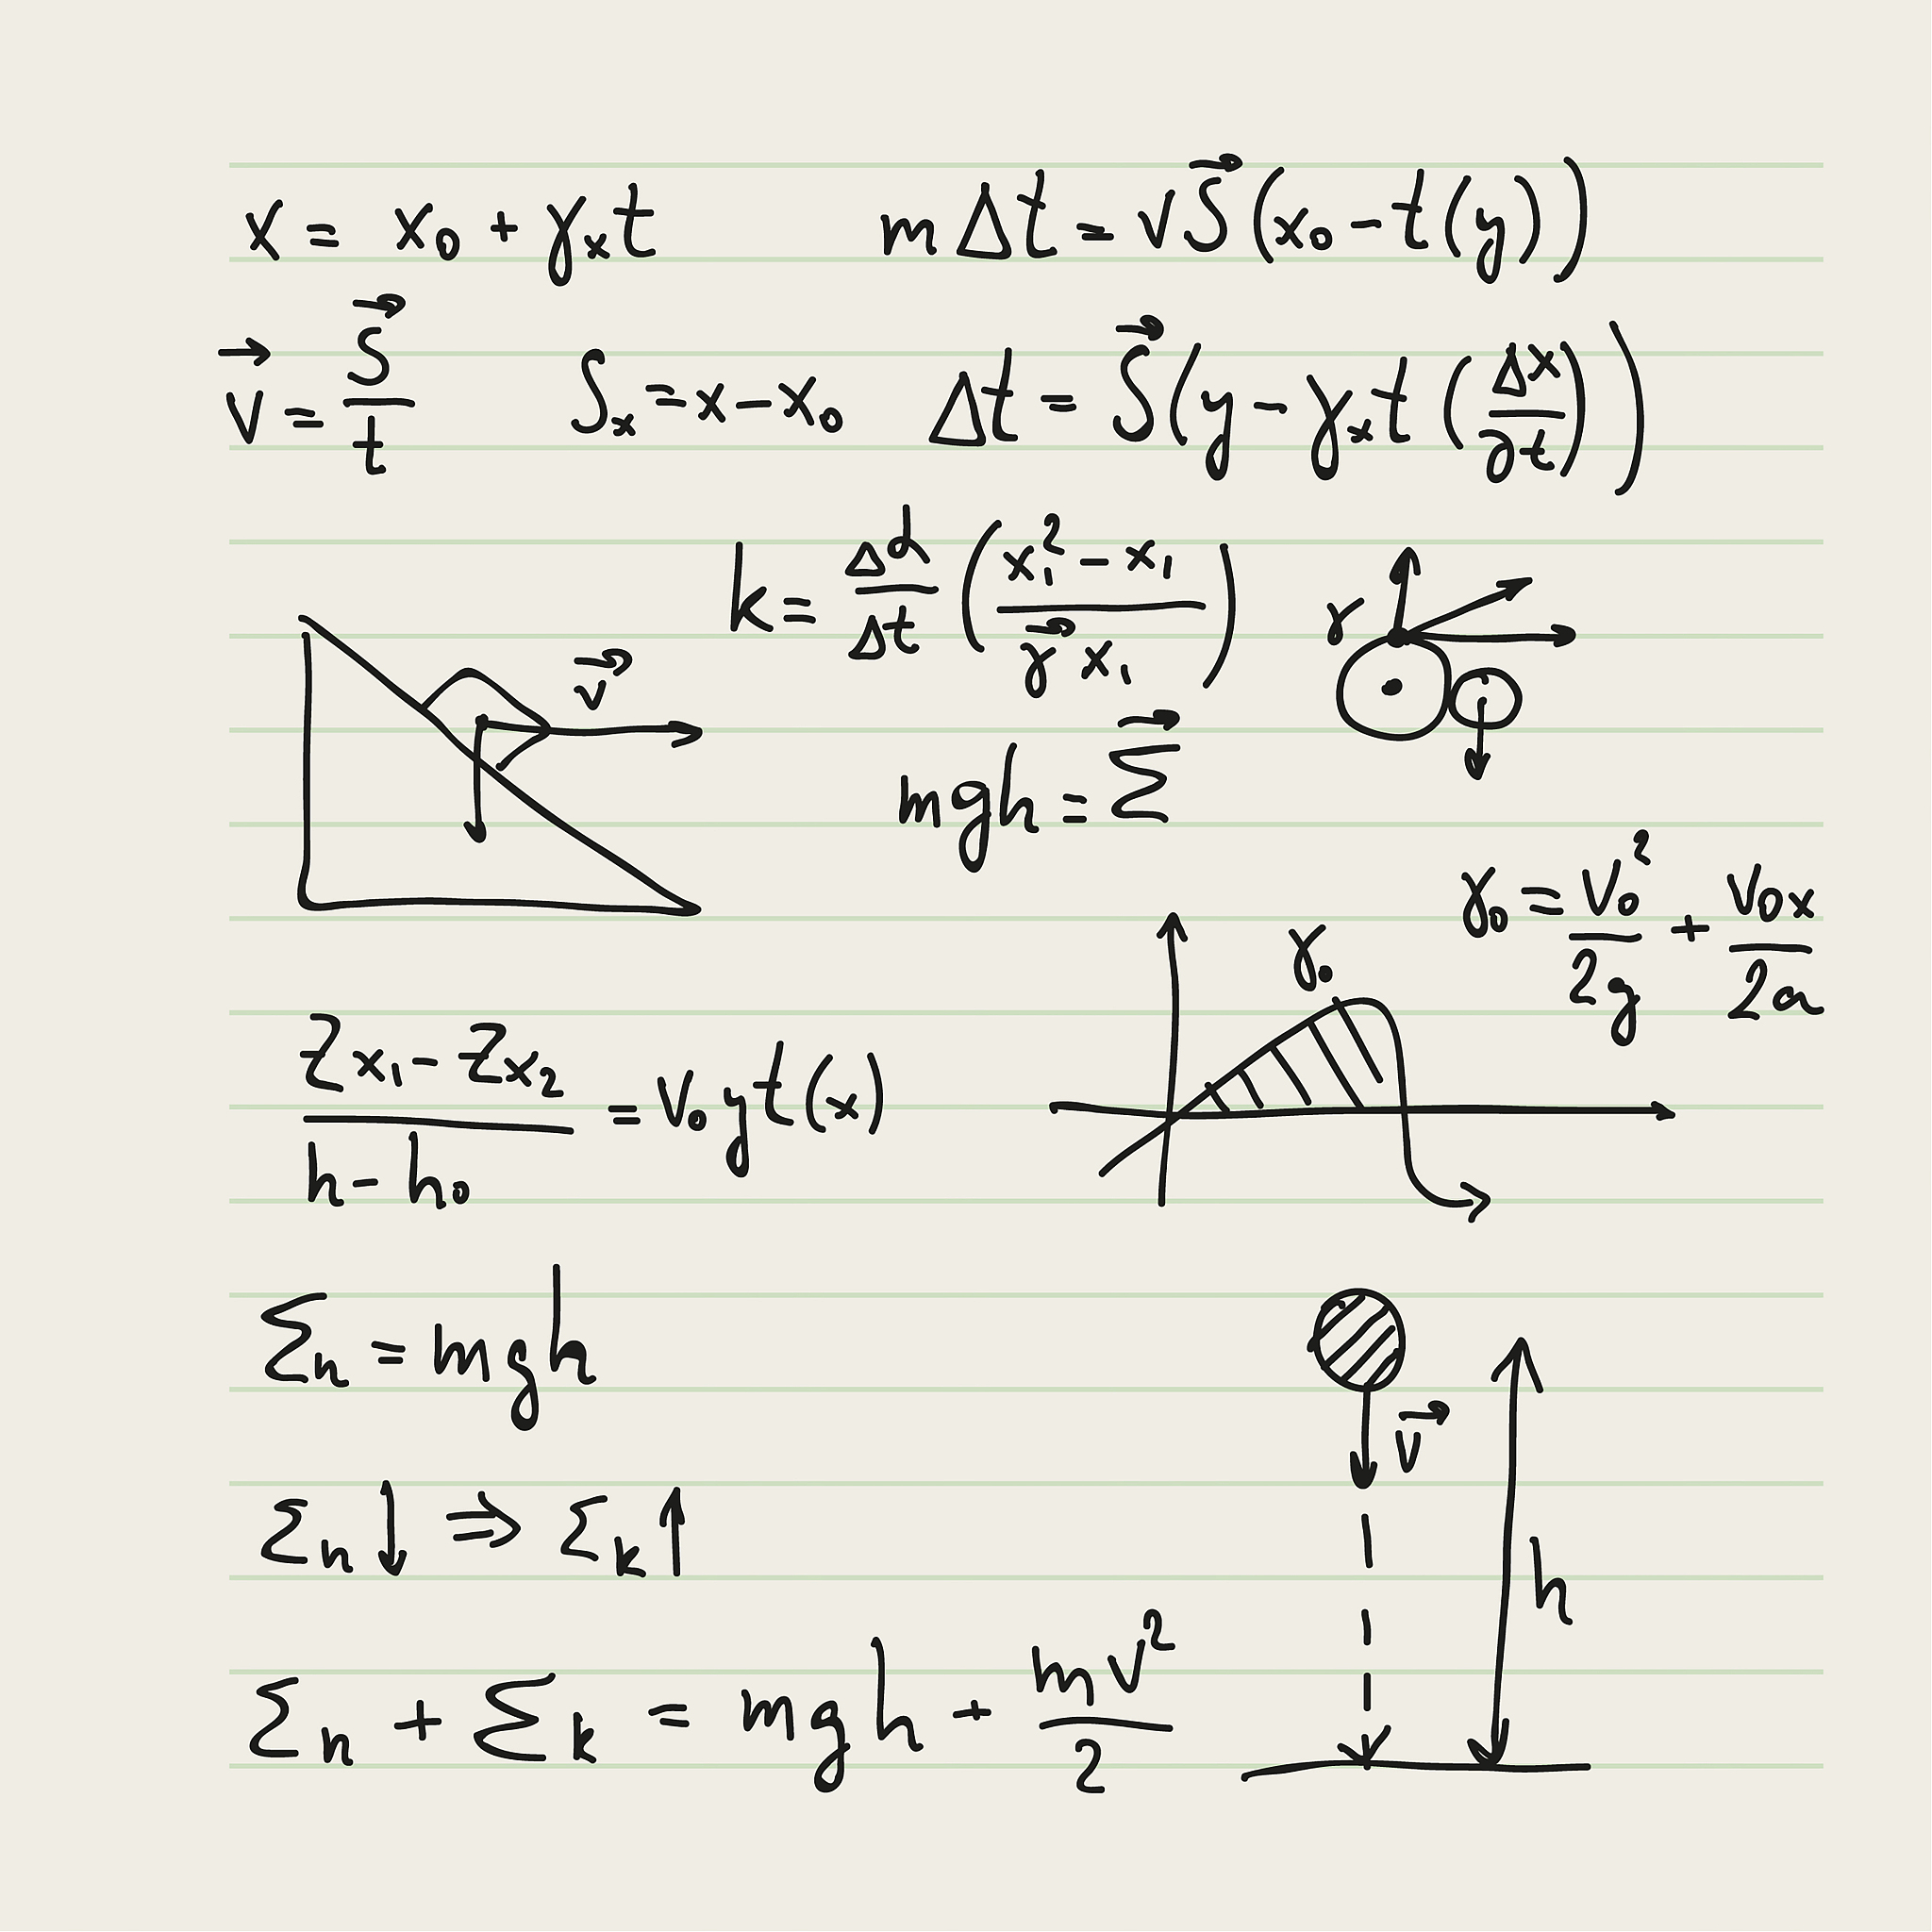 x = x₀ + γₓt
m Δt = √S⃗ (x₀ − t(y))
v⃗ = S⃗/t
Sₓ = x − x₀
Δt = S⃗(y − γₓt (Δx/∂t))
k = Δd/Δt ((x₁² − x₁)/(γ⃗ x₁))
γ
v⃗
mgh = Σ⃗
γ₀ = V₀²/2g + V₀x/2a
γ₀
(Zx₁ − Zx₂)/(h − h₀) = V₀yt(x)
Σn = mgh
v⃗
Σn↓ ⇒ Σk↑
h
Σn + Σk = mgh + mv²/2